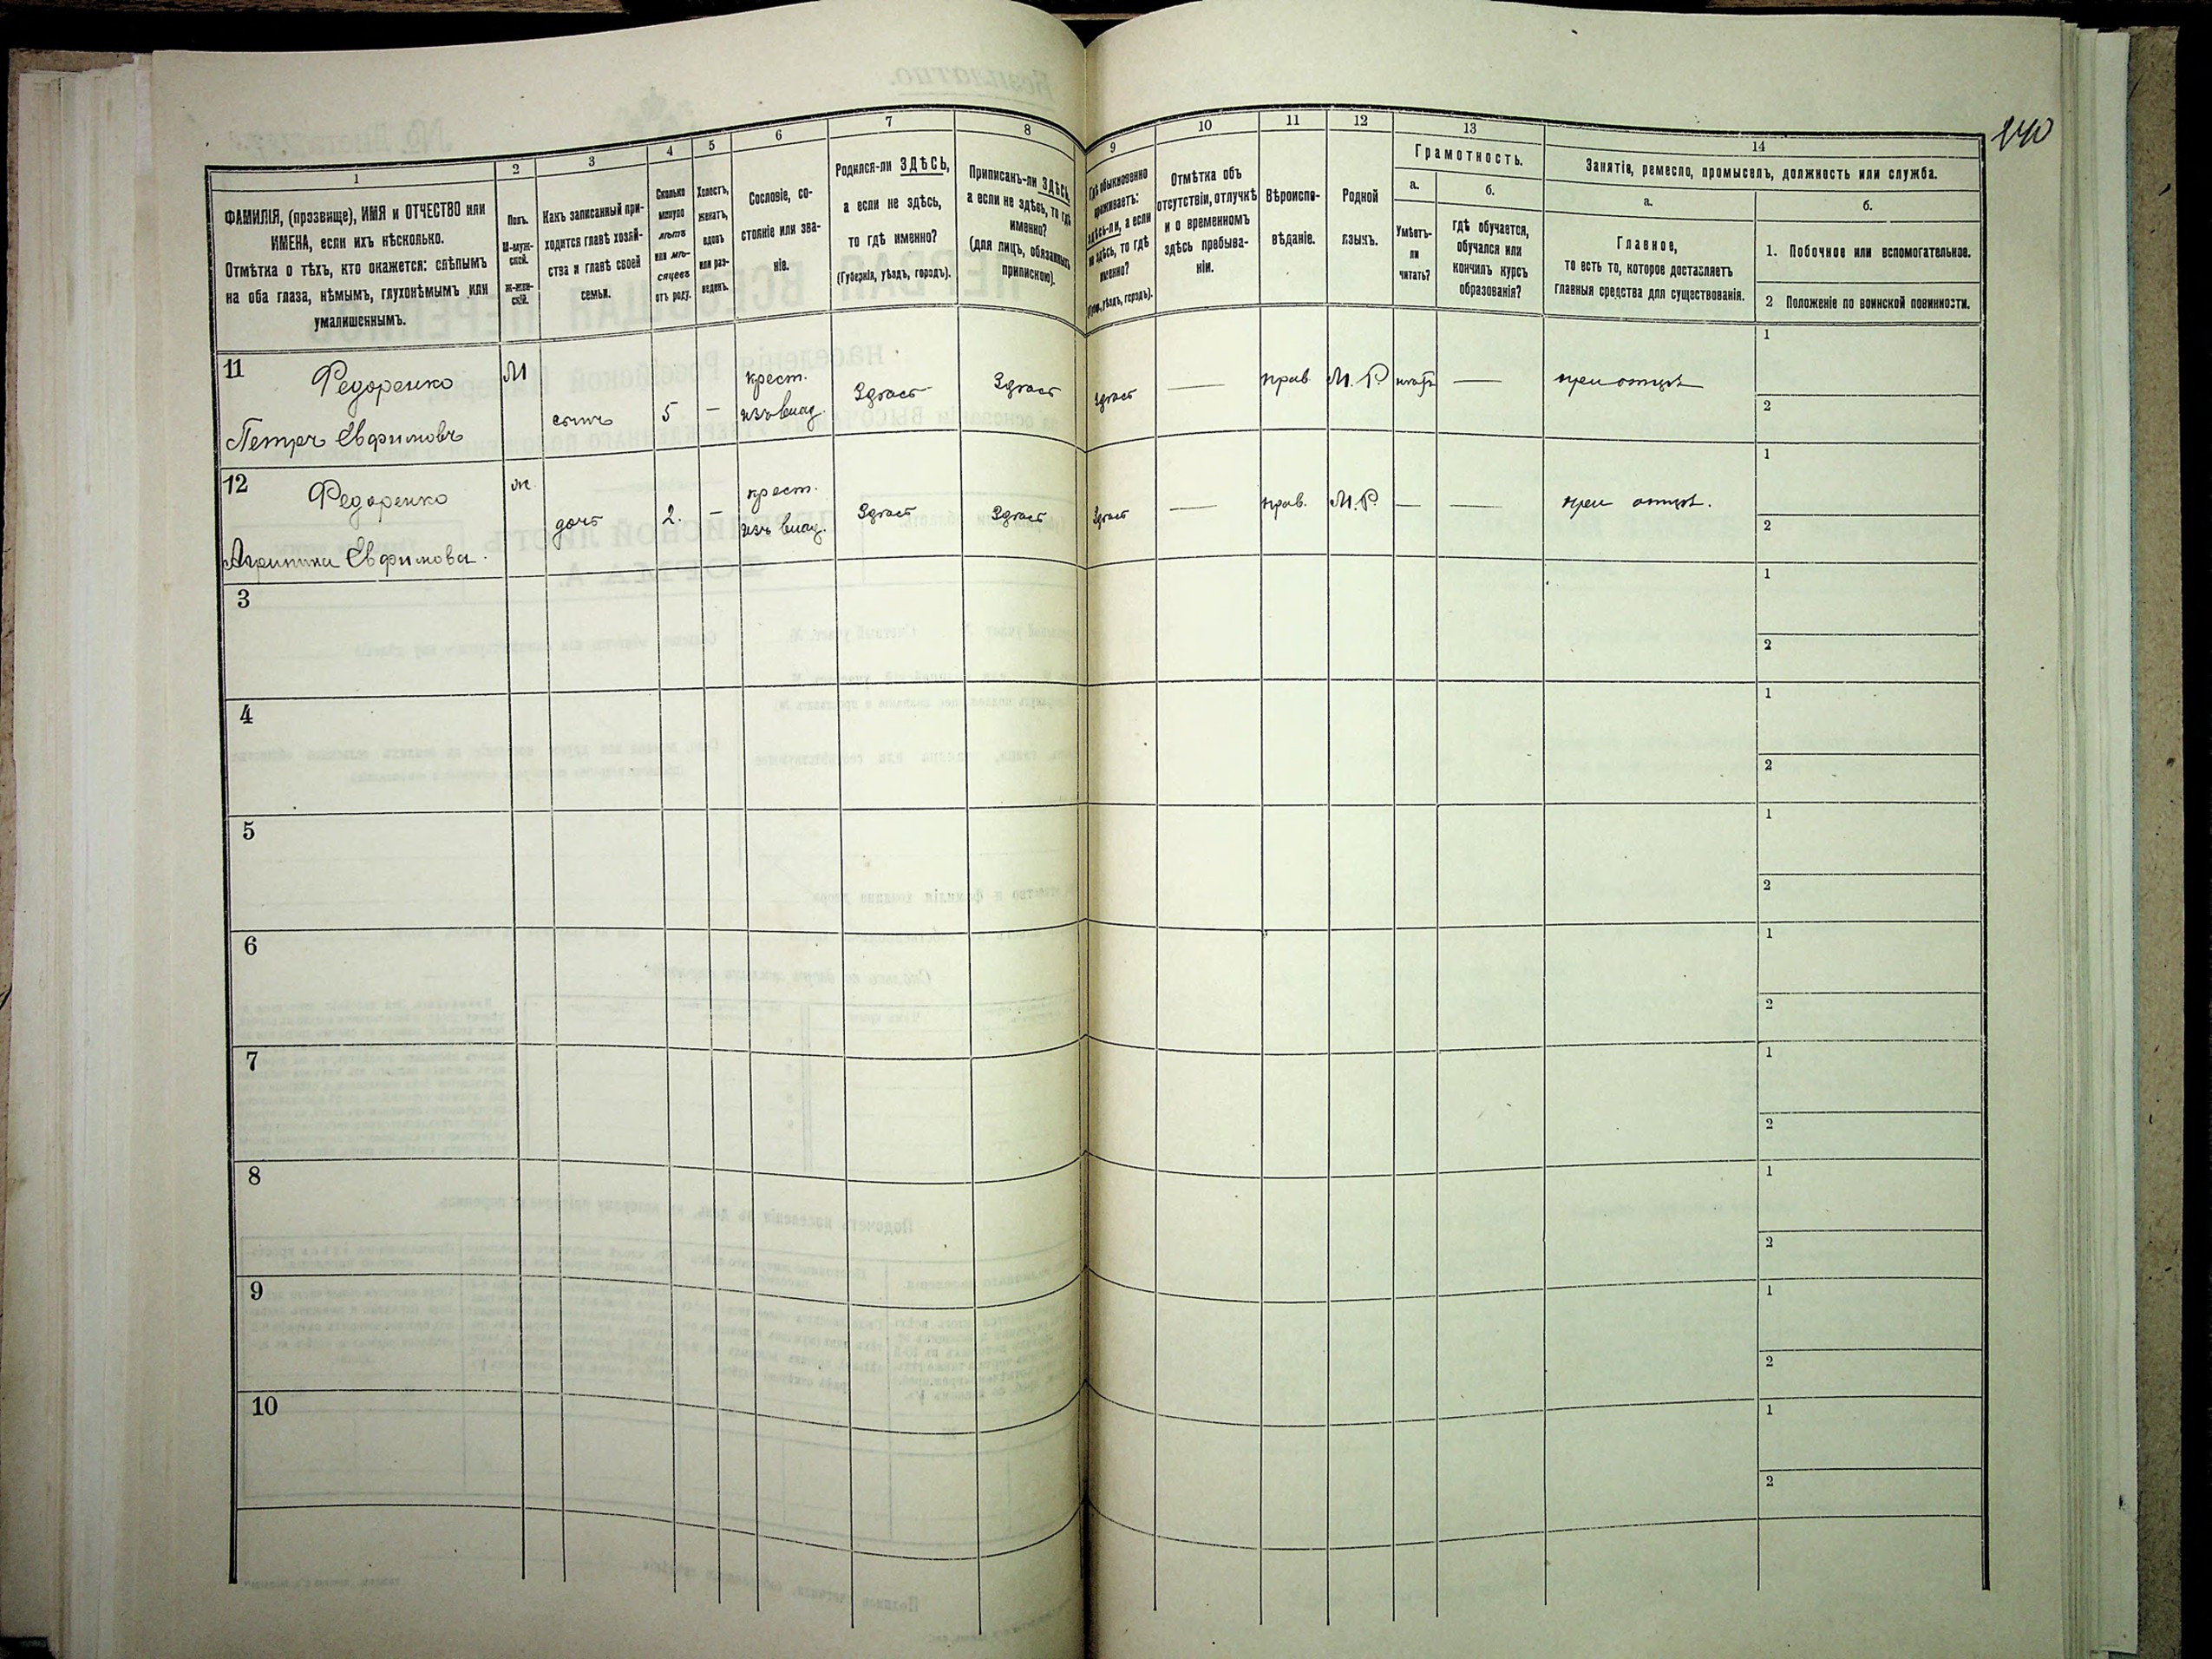 140
1 2 3 4 5 6 7 8 9 10 11 12 13 14
ФАМИЛІЯ, (прозвище), ИМЯ и ОТЧЕСТВО или
ИМЕНА, если ихъ нѣсколько.
Отмѣтка о тѣхъ, кто окажется: слѣпымъ
на оба глаза, нѣмымъ, глухонѣмымъ или
умалишеннымъ.
Полъ.
М-муж-
ской.
Ж-жен-
скій.
Какъ записанный при-
ходится главѣ хозяй-
ства и главѣ своей
семьи.
Сколько
минуло
лѣтъ
или мѣ-
сяцевъ
отъ роду.
Холостъ,
женатъ,
вдовъ
или раз-
веденъ.
Сословіе, со-
стояніе или зва-
ніе.
Родился-ли ЗДѢСЬ,
а если не здѣсь,
то гдѣ именно?
(Губернія, уѣздъ, городъ).
Приписанъ-ли ЗДѢСЬ,
а если не здѣсь, то гдѣ
именно?
(для лицъ, обязанныхъ
припискою).
Гдѣ обыкновенно
проживаетъ:
здѣсь-ли, а если
не здѣсь, то гдѣ
именно?
(Губ., уѣздъ, городъ).
Отмѣтка объ
отсутствіи, отлучкѣ
и о временномъ
здѣсь пребыва-
ніи.
Вѣроиспо-
вѣданіе.
Родной
языкъ.
Грамотность.
а.
Умѣетъ-
ли
читать?
б.
гдѣ обучается,
обучался или
кончилъ курсъ
образованія?
Занятія, ремесло, промыселъ, должность или служба.
а.
Главное,
то есть то, которое доставляетъ
главныя средства для существованія.
б.
1. Побочное или вспомогательное.
2 Положеніе по воинской повинности.
11 Федоренко
Петръ Евфимовъ
М
сынъ
5
—
крест.
изъ влад.
Здѣсь
Здѣсь
Здѣсь
—
прав.
М. Р.
—
при отцѣ
1
2
12 Федоренко
Агрипина Евфимова.
ж.
дочь
2.
—
крест.
изъ влад.
Здѣсь
Здѣсь
Здѣсь
—
прав.
М. Р.
—
—
при отцѣ.
1
2
3
1
2
4
1
2
5
1
2
6
1
2
7
1
2
8
1
2
9
1
2
10
1
2